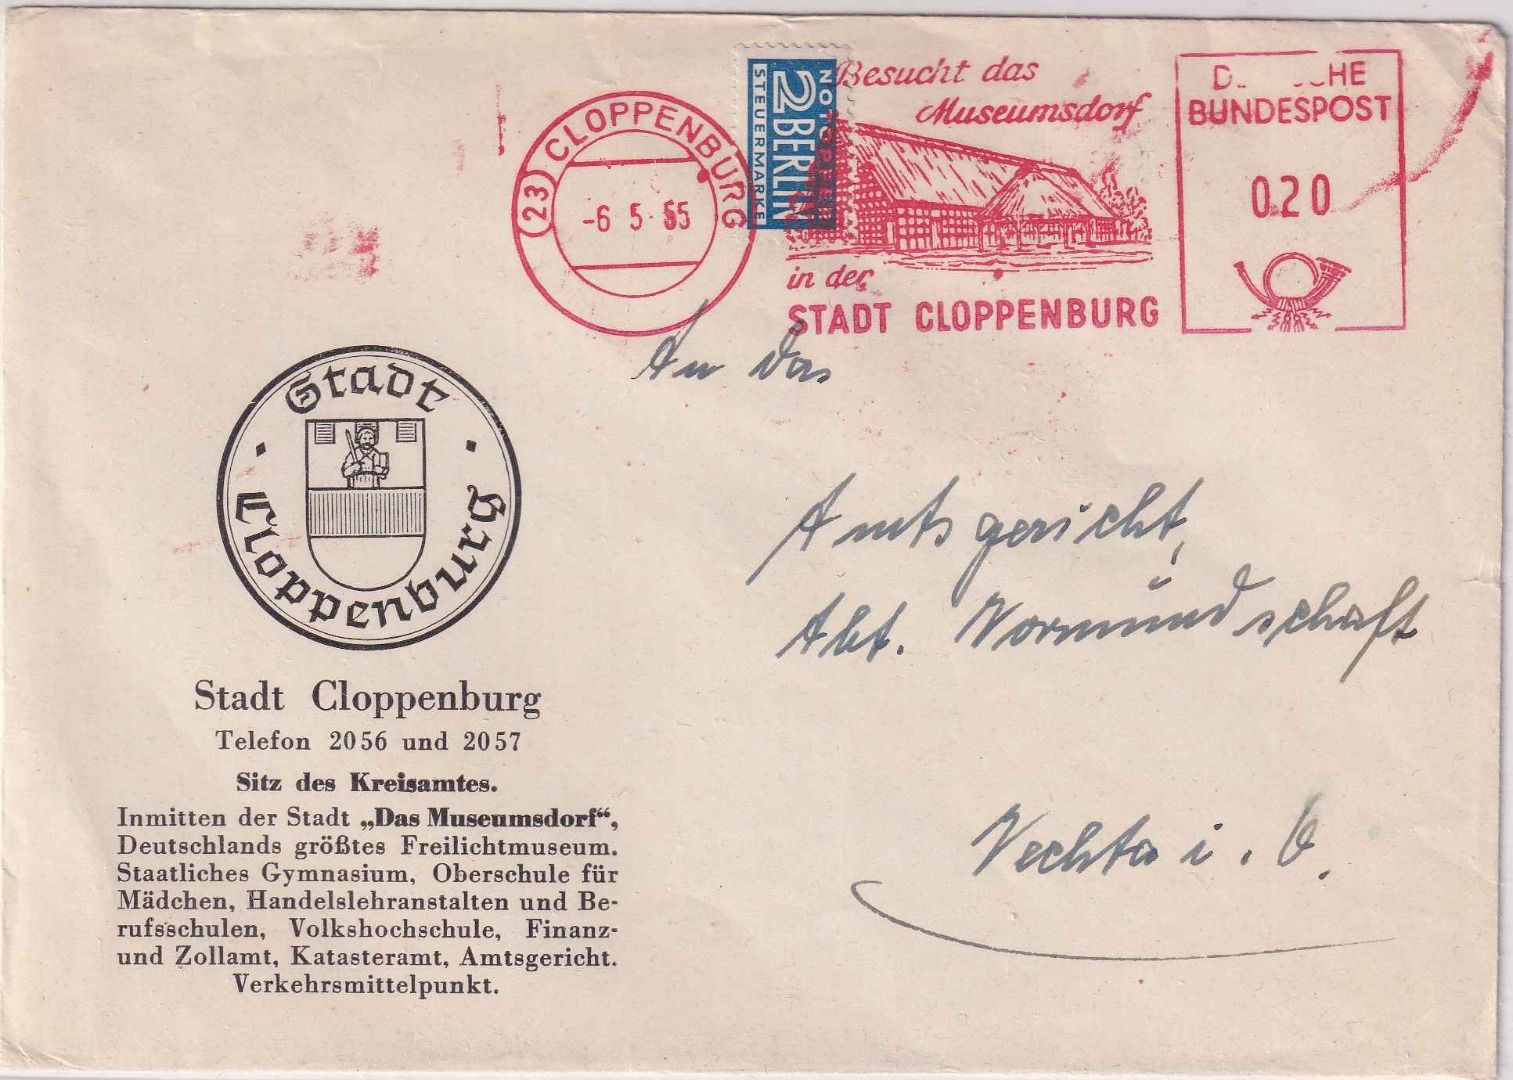 (23) CLOPPENBURG
-6 5 55
NOTOPFER
2 BERLIN
STEUERMARKE
Besucht das
Museumsdorf
in der
STADT CLOPPENBURG
DEUTSCHE
BUNDESPOST
020
Stadt
Cloppenburg
Stadt Cloppenburg
Telefon 2056 und 2057
Sitz des Kreisamtes.
Inmitten der Stadt „Das Museumsdorf“,
Deutschlands größtes Freilichtmuseum.
Staatliches Gymnasium, Oberschule für
Mädchen, Handelslehranstalten und Be-
rufsschulen, Volkshochschule, Finanz-
und Zollamt, Katasteramt, Amtsgericht.
Verkehrsmittelpunkt.
An das
Amtsgericht,
Abt. Vormundschaft
Vechta i. O.